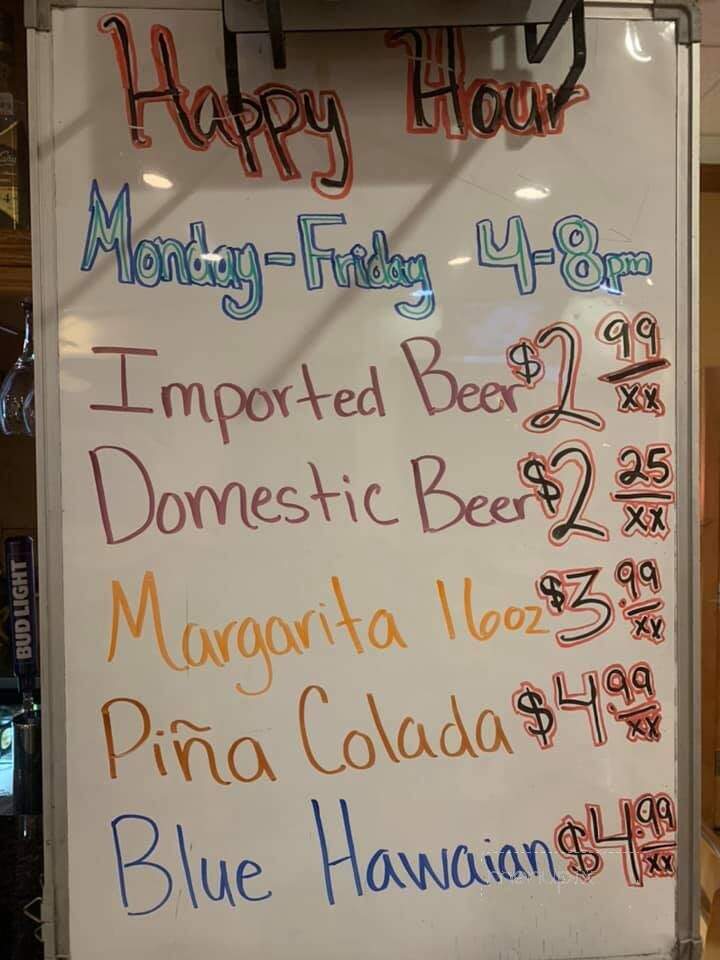 Happy Hour
Monday-Friday 4-8pm
Imported Beer $2 99/xx
Domestic Beer $2 25/xx
Margarita 16oz $3.99/xx
Piña Colada $4.99/xx
Blue Hawaian $4.99/xx
BUD LIGHT